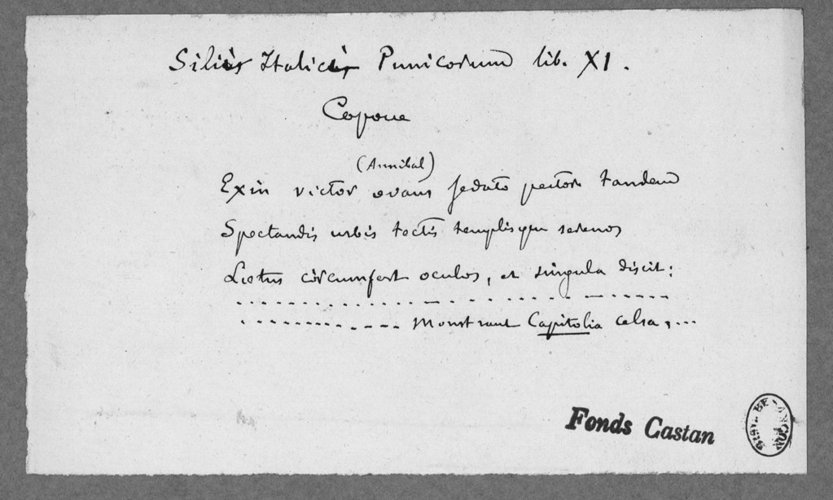 Silius Italicus Punicorum lib. XI.
Capoue
(Annibal)
Exin victor ovans sedato pectore tandem
Spectandis urbis tectis templisque serenos
Laetus circumfert oculos, et singula discit:
............ monstrant Capitolia celsa, ...
Fonds Castan